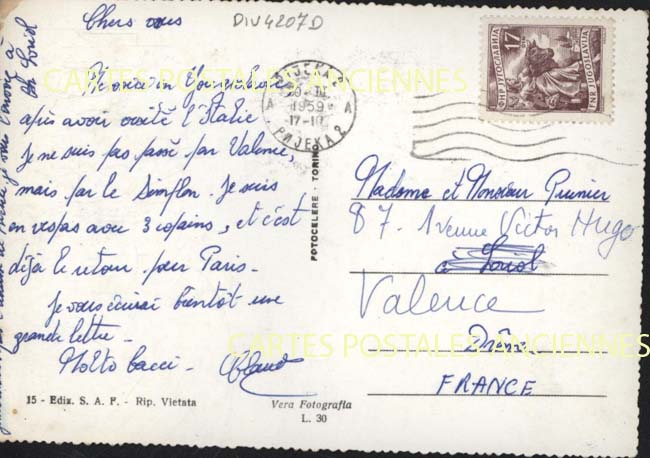 Chers vous
DIV4207D
après avoir visité l'Italie
Je ne suis pas passé par Valence,
mais par le Simplon. Je suis
en vespas avec 3 copains, et c'est
déjà le retour pour Paris -
Je vous écrirai bientôt une
grande lettre -
Molto bacci -
15 - Ediz. S. A. F. - Rip. Vietata
Vera Fotografia
L. 30
FOTOCELERE - TORINO
1959
17-10
A A
РИЈЕКА 2
17
ФНР ЈУГОСЛАВИЈА
FNR JUGOSLAVIJA
Madame et Monsieur Prunier
87 - Avenue Victor Hugo
à Loriol
Valence
Drôme
FRANCE
à Loriol
CARTES POSTALES ANCIENNES
CARTES POSTALES ANCIENNES